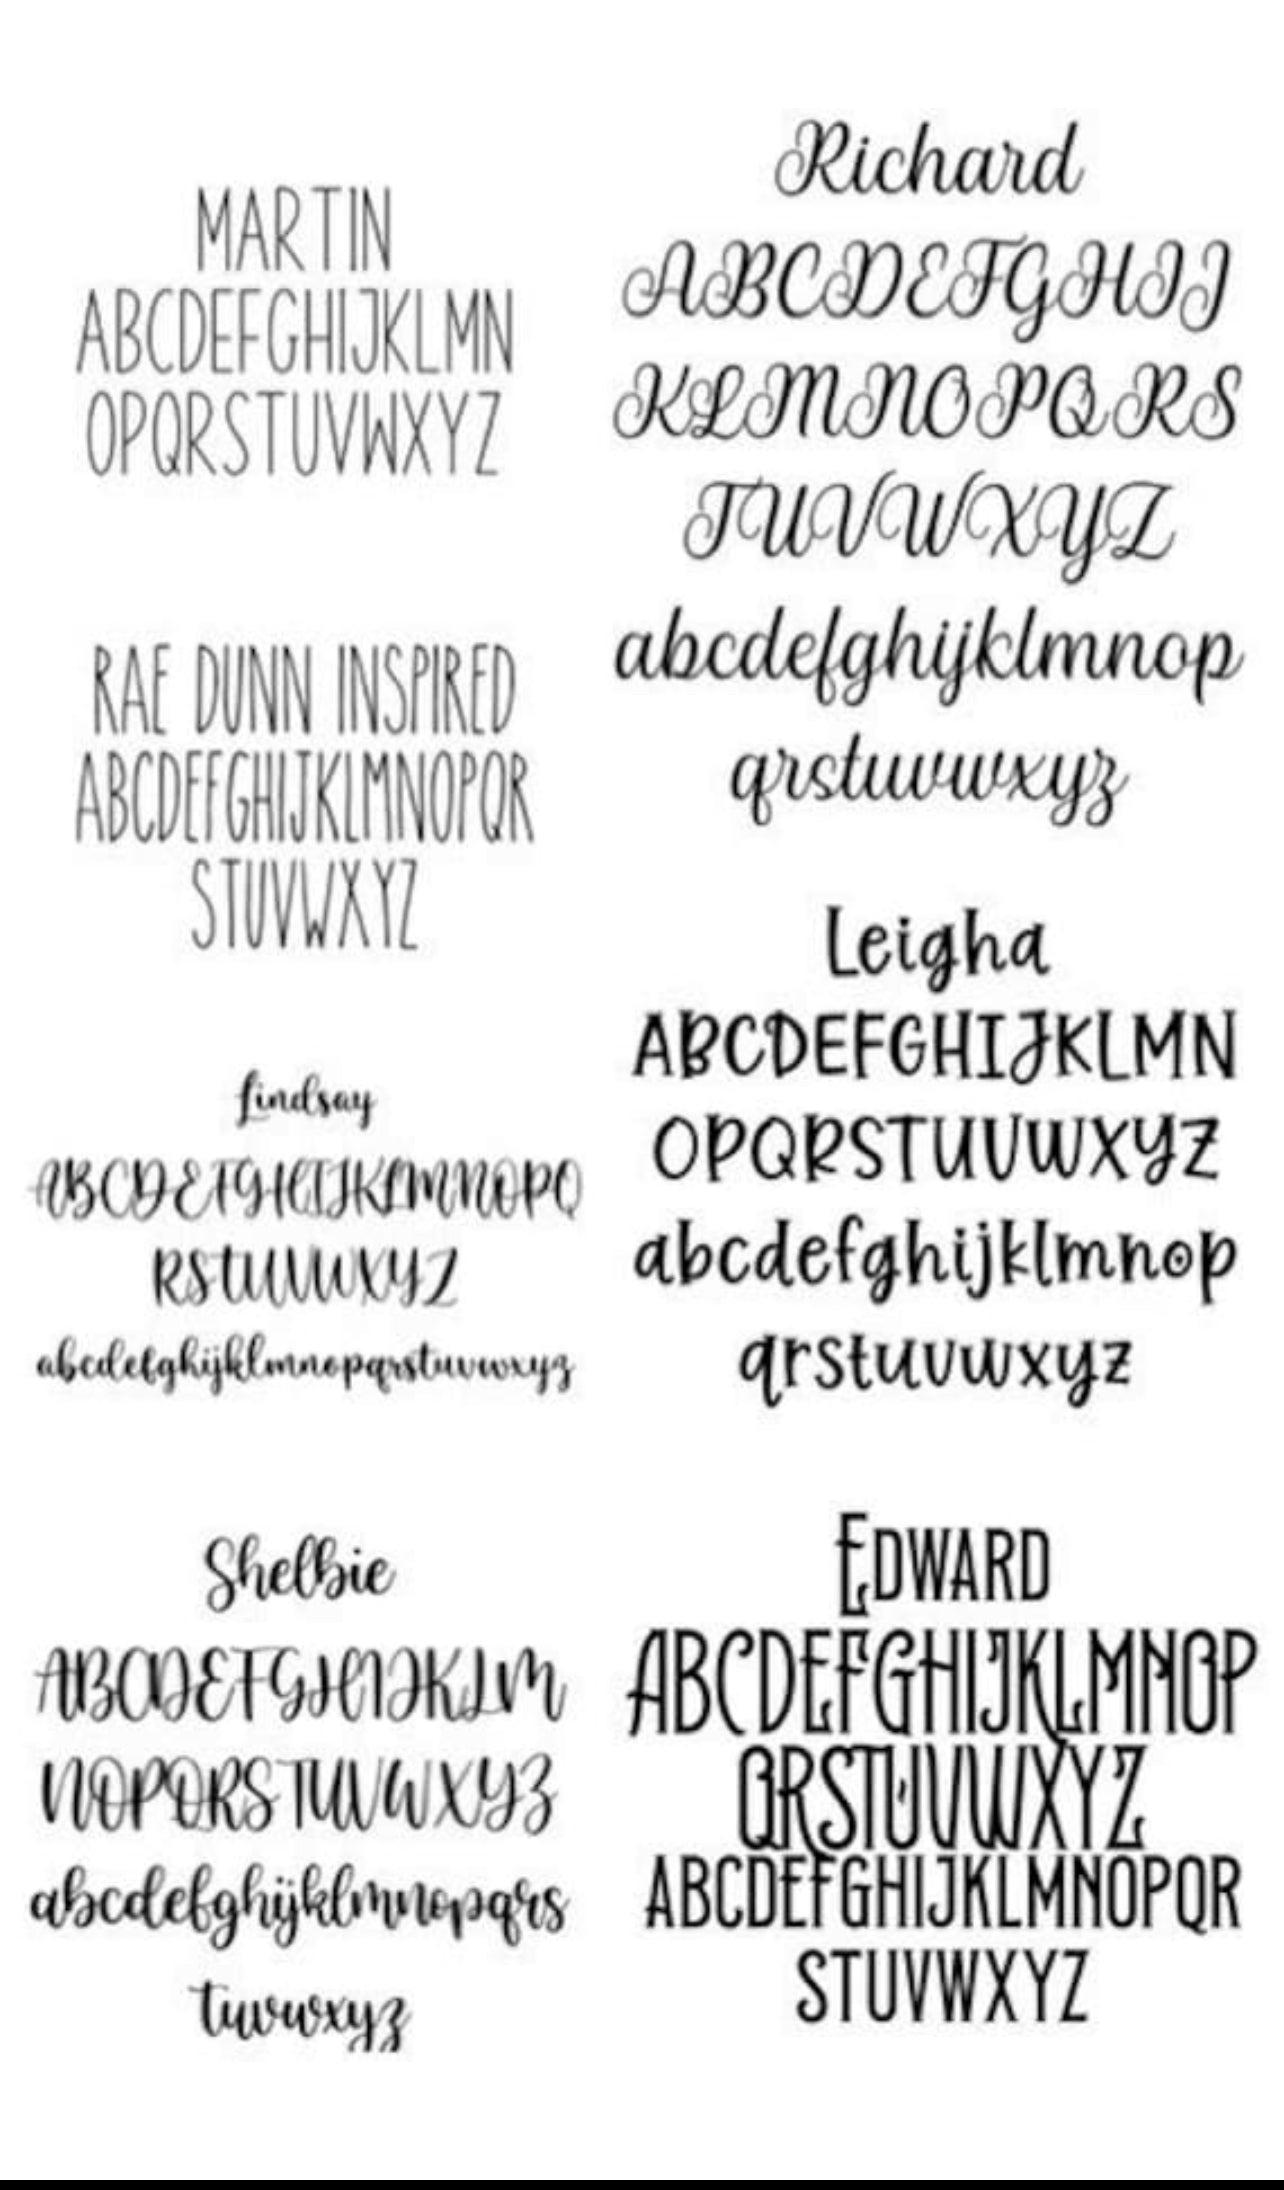 MARTIN
ABCDEFGHIJKLMN
OPQRSTUVWXYZ
RAE DUNN INSPIRED
ABCDEFGHIJKLMNOPQR
STUVWXYZ
Lindsay
ABCDEFGHIJKLMNOPQ
RSTUVWXYZ
abcdefghijklmnopqrstuvwxyz
Shelbie
ABCDEFGHIJKLM
NOPQRSTUVWXYZ
abcdefghijklmnopqrs
tuvwxyz
Richard
ABCDEFGHIJ
KLMNOPQRS
TUVWXYZ
abcdefghijklmnop
qrstuvwxyz
Leigha
ABCDEFGHIJKLMN
OPQRSTUVWXYZ
abcdefghijklmnop
qrstuvwxyz
EDWARD
ABCDEFGHIJKLMNOP
QRSTUVWXYZ
ABCDEFGHIJKLMNOPQR
STUVWXYZ